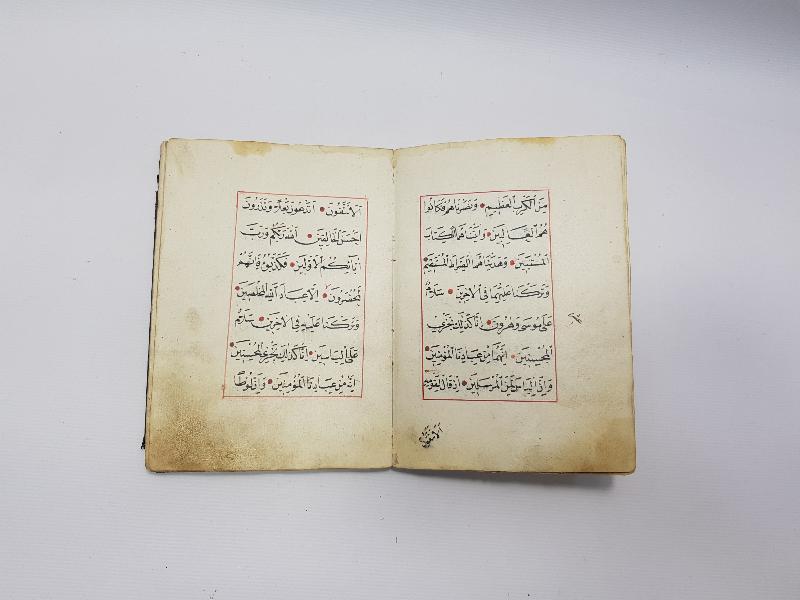 مِنَ الْكَرْبِ الْعَظِيمِ وَنَصَرْنَاهُمْ فَكَانُوا
هُمُ الْغَالِبِينَ وَاٰتَيْنَاهُمَا الْكِتَابَ
الْمُسْتَبِينَ وَهَدَيْنَاهُمَا الصِّرَاطَ الْمُسْتَقِيمَ
وَتَرَكْنَا عَلَيْهِمَا فِي الْاٰخِرِينَ سَلَامٌ
عَلَى مُوسَى وَهٰرُونَ اِنَّا كَذٰلِكَ نَجْزِي
الْمُحْسِنِينَ اِنَّهُمَا مِنْ عِبَادِنَا الْمُؤْمِنِينَ
وَاِنَّ اِلْيَاسَ لَمِنَ الْمُرْسَلِينَ اِذْ قَالَ لِقَوْمِهِ
اَلَا تَتَّقُونَ
اَلَا تَتَّقُونَ اَتَدْعُونَ بَعْلًا وَتَذَرُونَ
اَحْسَنَ الْخَالِقِينَ اَللّٰهَ رَبَّكُمْ وَرَبَّ
اٰبَائِكُمُ الْاَوَّلِينَ فَكَذَّبُوهُ فَاِنَّهُمْ
لَمُحْضَرُونَ اِلَّا عِبَادَ اللّٰهِ الْمُخْلَصِينَ
وَتَرَكْنَا عَلَيْهِ فِي الْاٰخِرِينَ سَلَامٌ
عَلَى اِلْيَاسِينَ اِنَّا كَذٰلِكَ نَجْزِي الْمُحْسِنِينَ
اِنَّهُ مِنْ عِبَادِنَا الْمُؤْمِنِينَ وَاِنَّ لُوطًا